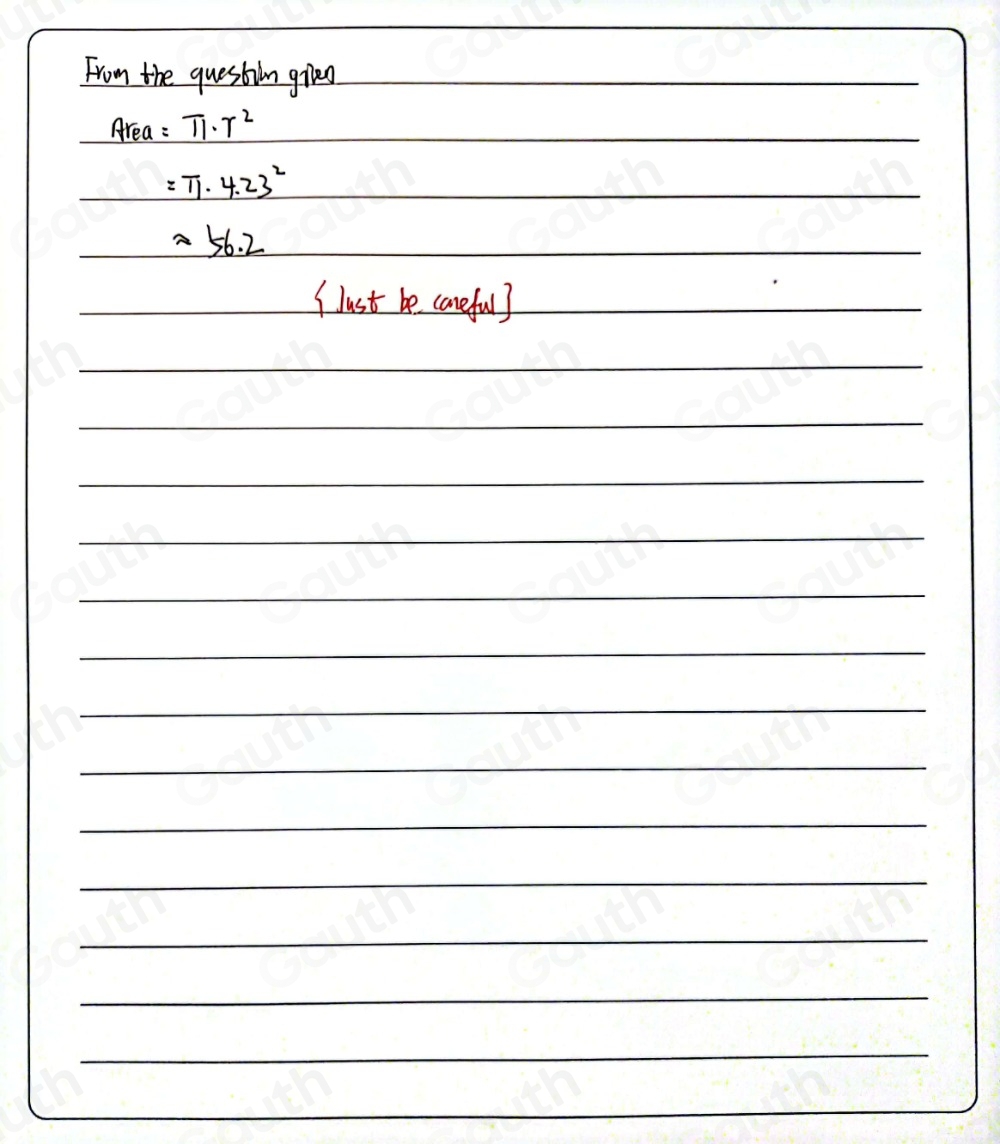 From the question given
Area = π·r²
= π·4.23²
≈ 56.2
{Just be careful]